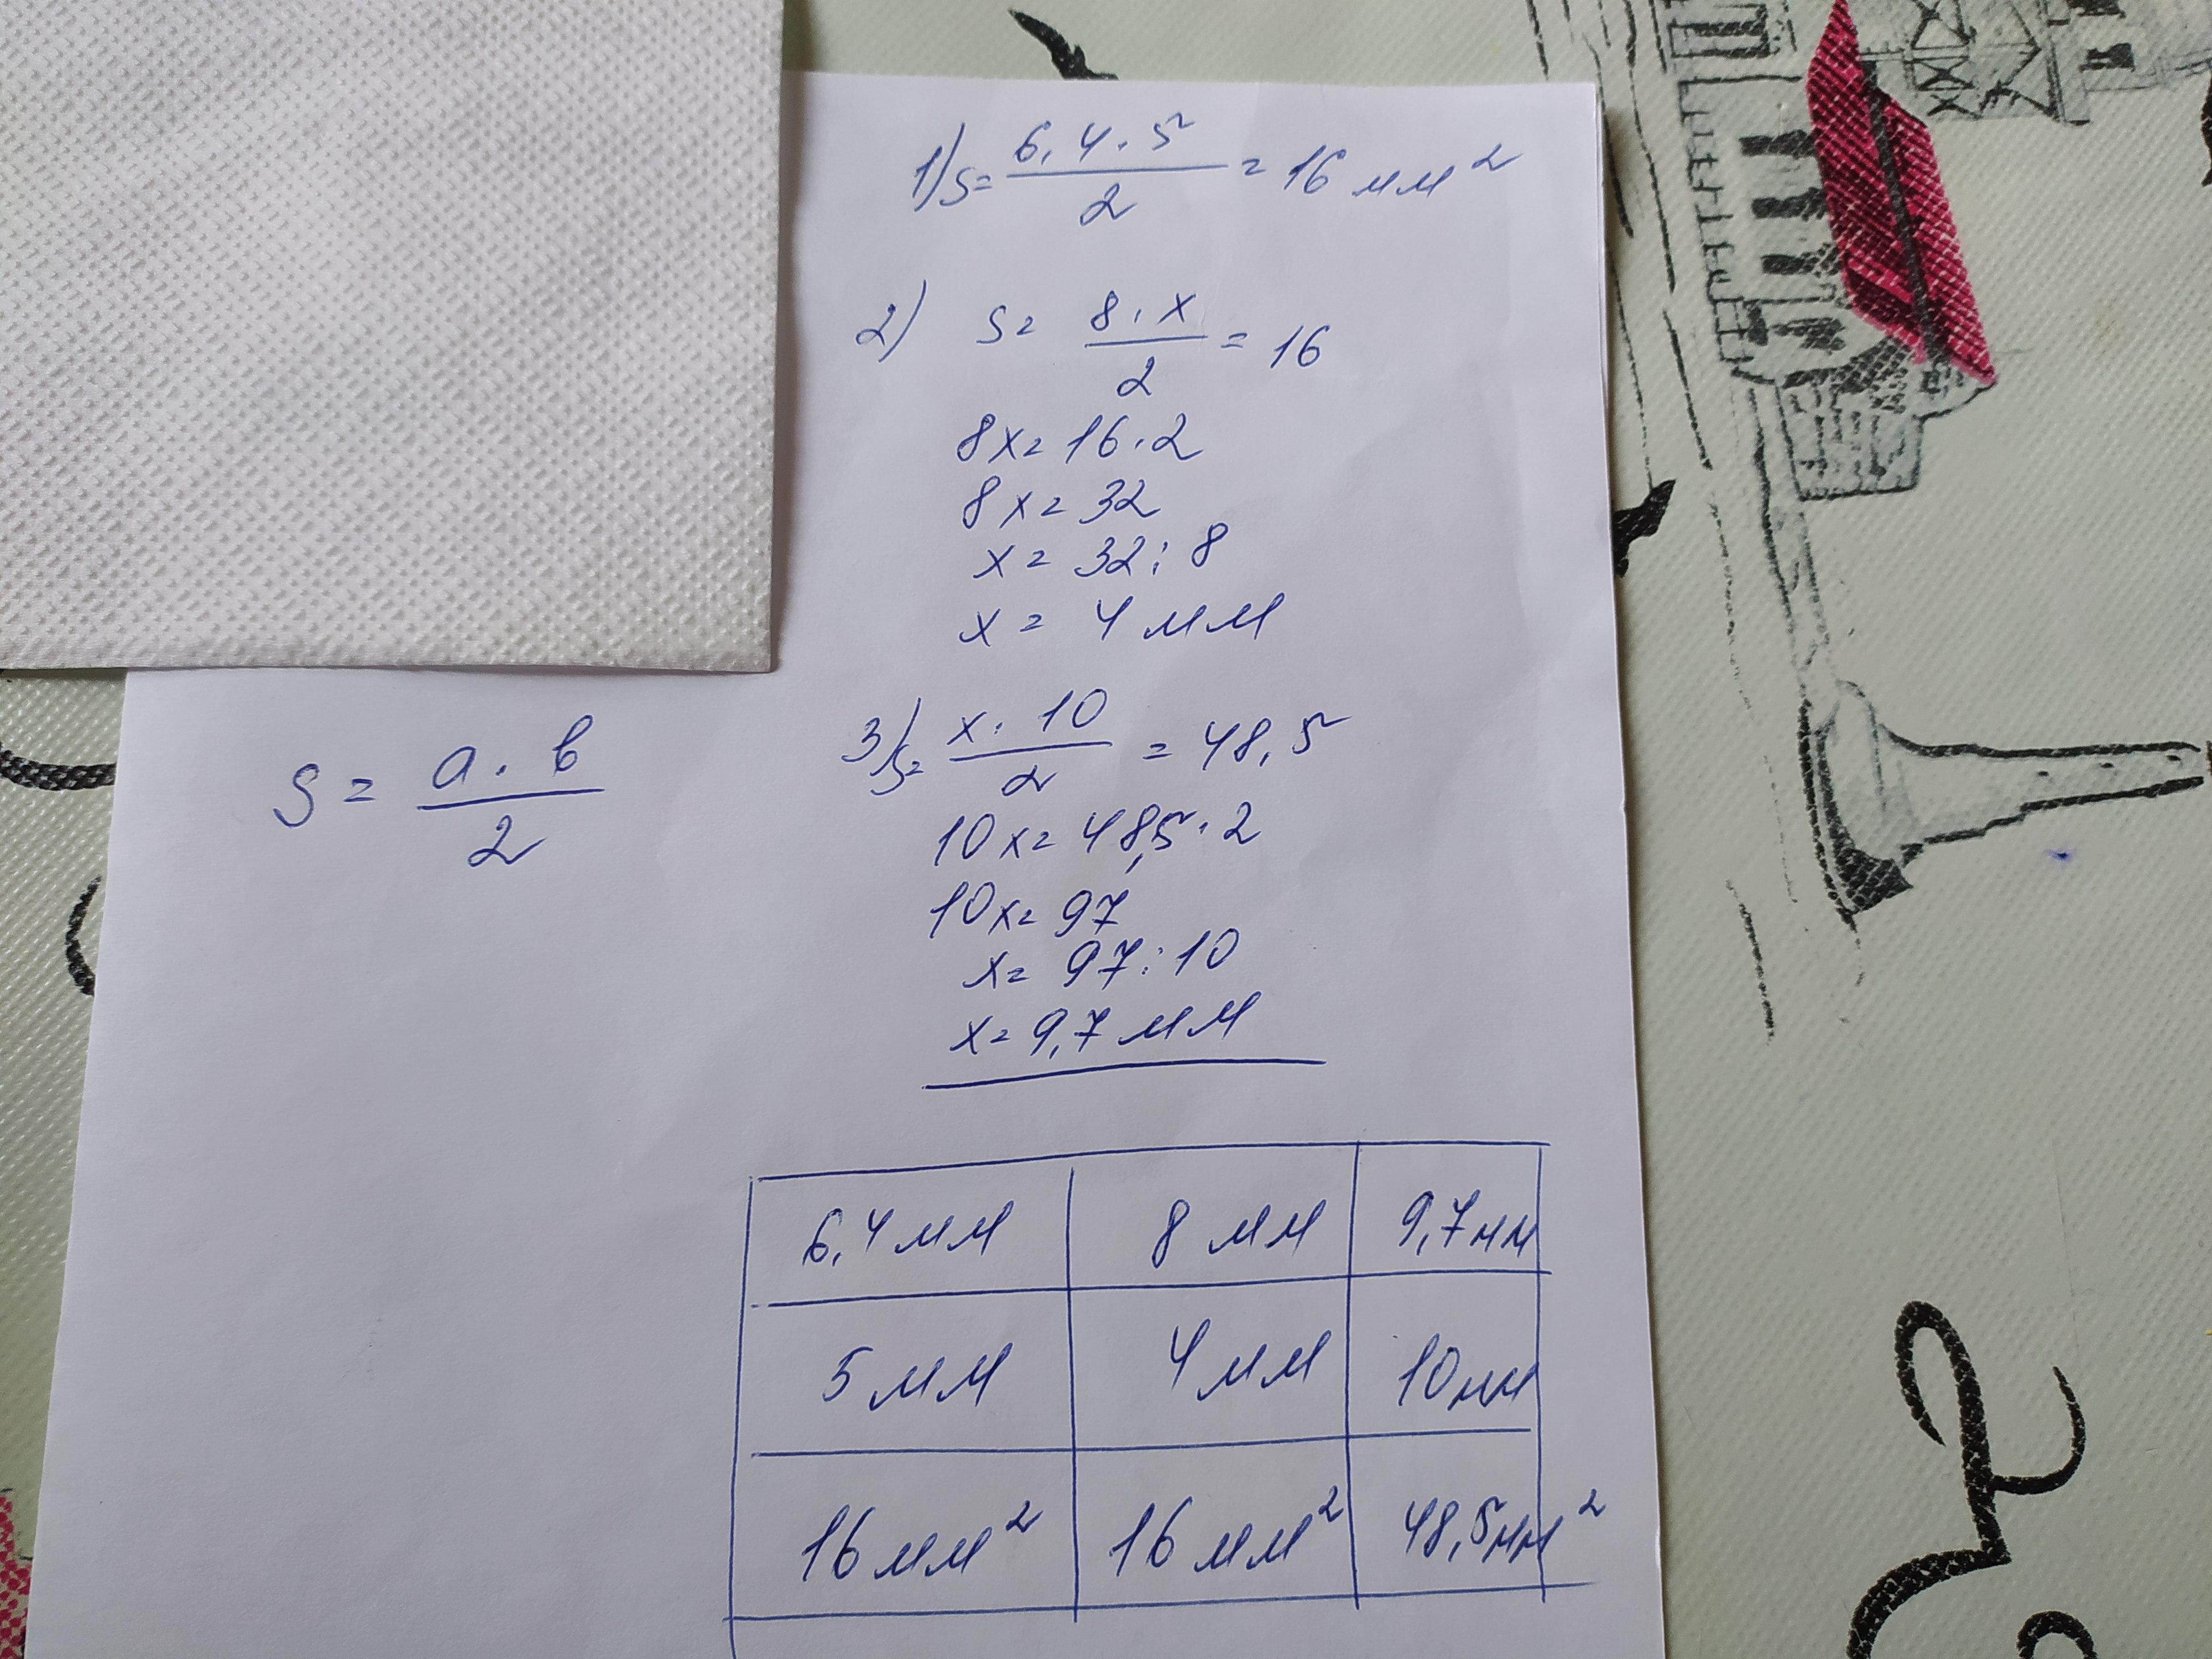 1) S = 6,4 · 5 / 2 = 16 мм²
2) S = 8 · x / 2 = 16
8x = 16 · 2
8x = 32
x = 32 : 8
x = 4 мм
S = a · b / 2
3) S = x · 10 / 2 = 48,5
10x = 48,5 · 2
10x = 97
x = 97 : 10
x = 9,7 мм
6,4 мм 8 мм 9,7 мм
5 мм 4 мм 10 мм
16 мм² 16 мм² 48,5 мм²